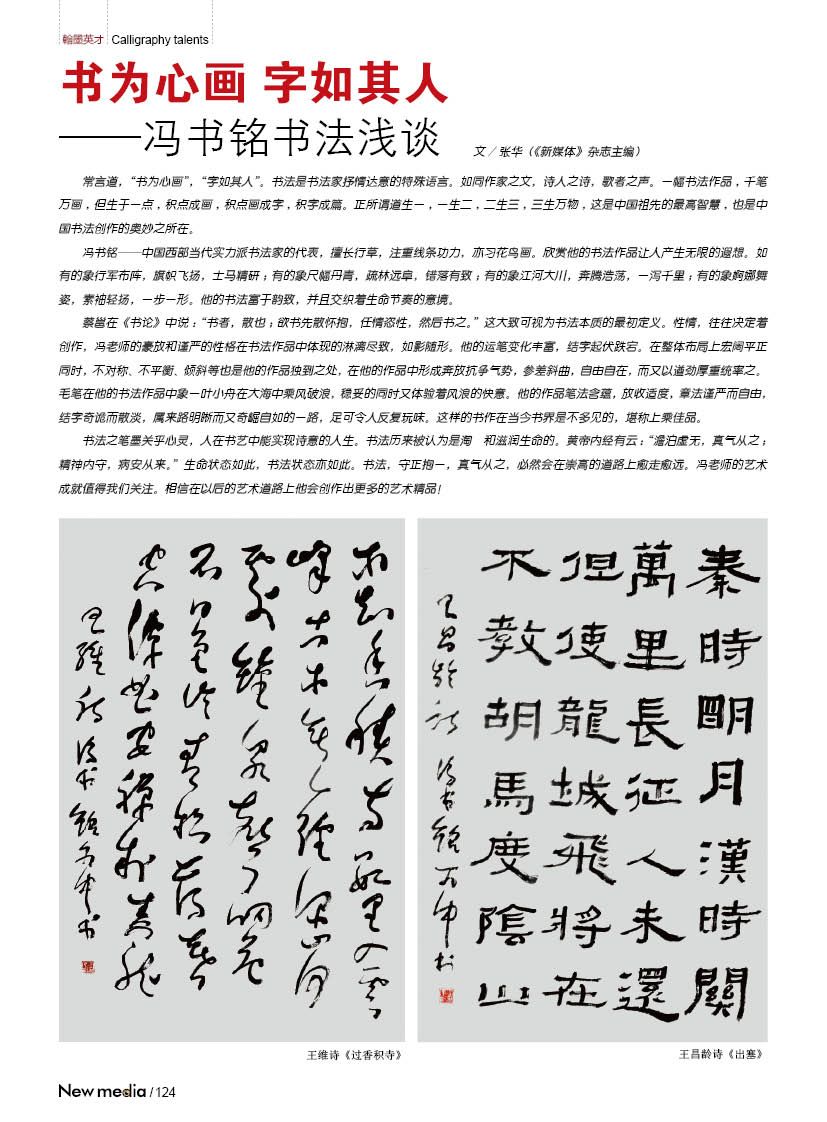 翰墨英才 Calligraphy talents
书为心画 字如其人
——冯书铭书法浅谈 文／张华（《新媒体》杂志主编）
常言道，“书为心画”，“字如其人”。书法是书法家抒情达意的特殊语言。如同作家之文，诗人之诗，歌者之声。一幅书法作品，千笔
万画，但生于一点，积点成画，积点画成字，积字成篇。正所谓道生一，一生二，二生三，三生万物，这是中国祖先的最高智慧，也是中
国书法创作的奥妙之所在。
冯书铭——中国西部当代实力派书法家的代表，擅长行草，注重线条功力，亦习花鸟画。欣赏他的书法作品让人产生无限的遐想。如
有的象行军布阵，旗帜飞扬，士马精研；有的象尺幅丹青，疏林远阜，错落有致；有的象江河大川，奔腾浩荡，一泻千里；有的象婀娜舞
姿，素袖轻扬，一步一形。他的书法富于韵致，并且交织着生命节奏的意境。
蔡邕在《书论》中说：“书者，散也；欲书先散怀抱，任情恣性，然后书之。”这大致可视为书法本质的最初定义。性情，往往决定着
创作，冯老师的豪放和谨严的性格在书法作品中体现的淋漓尽致，如影随形。他的运笔变化丰富，结字起伏跌宕。在整体布局上宏阔平正
同时，不对称、不平衡、倾斜等也是他的作品独到之处，在他的作品中形成奔放抗争气势，参差斜曲，自由自在，而又以遒劲厚重统率之。
毛笔在他的书法作品中象一叶小舟在大海中乘风破浪，稳妥的同时又体验着风浪的快意。他的作品笔法含蕴，放收适度，章法谨严而自由，
结字奇诡而散淡，属来路明晰而又奇崛自如的一路，足可令人反复玩味。这样的书作在当今书界是不多见的，堪称上乘佳品。
书法之笔墨关乎心灵，人在书艺中能实现诗意的人生。书法历来被认为是淘 和滋润生命的。黄帝内经有云：“澹泊虚无，真气从之；
精神内守，病安从来。”生命状态如此，书法状态亦如此。书法，守正抱一，真气从之，必然会在崇高的道路上愈走愈远。冯老师的艺术
成就值得我们关注。相信在以后的艺术道路上他会创作出更多的艺术精品！
不知香積寺數里入雲
峰古木無人徑深山何
處鐘泉聲
日色冷青松薄暮
空潭曲安禪制毒龍
王維詩 馮书銘
秦時明月漢時關
萬里長征人未還
但使龍城飛將在
不教胡馬度陰山
王昌齡詩 馮书銘
王维诗《过香积寺》
王昌龄诗《出塞》
New media / 124